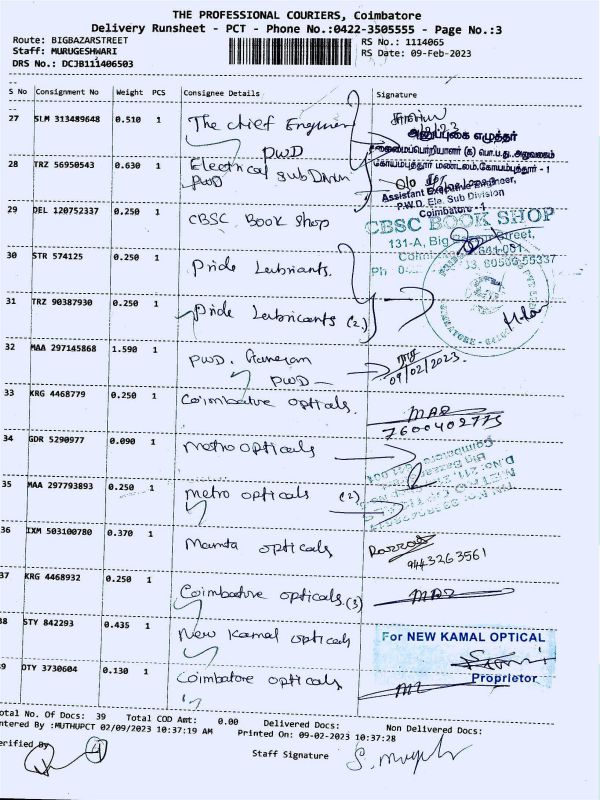 THE PROFESSIONAL COURIERS, Coimbatore
Delivery Runsheet - PCT - Phone No.:0422-3505555 - Page No.:3
Route: BIGBAZARSTREET
Staff: MURUGESHWARI
DRS No.: DCJB111406503
RS No.: 1114065
RS Date: 09-Feb-2023
S No Consignment No Weight PCS Consignee Details Signature
27 SLM 313489648 0.510 1 The chief Engineer
PWD
அனுப்புகை எழுத்தர்
தலைமைப்பொறியாளர் (க) பொ.ப.து. அலுவலகம்
கோயம்புத்தூர் மண்டலம், கோயம்புத்தூர் - 1
28 TRZ 56950543 0.630 1 Electrical sub Divin
PWD
O/o
Assistant Executive Engineer,
P.W.D. Ele. Sub Division
Coimbatore - 1
29 DEL 120752337 0.250 1 CBSC Book Shop
CBSC BOOK SHOP
131-A, Big Bazaar Street,
30 STR 574125 0.250 1 Pride Lubricants.
31 TRZ 90387930 0.250 1 Pride Lubricants (2)
32 MAA 297145868 1.590 1 PWD.
PWD
09/02/2023
33 KRG 4468779 0.250 1 Coimbatore opticals.
7600402775
34 GDR 5290977 0.090 1 metro opticals
35 MAA 297793893 0.250 1 metro opticals (2)
36 IXM 503100780 0.370 1 Mamta opticals
9443263561
37 KRG 4468932 0.250 1 Coimbatore opticals.(3)
38 STY 842293 0.435 1 New Kamal opticals
For NEW KAMAL OPTICAL
Proprietor
39 OTY 3730604 0.130 1 Coimbatore opticals
Total No. Of Docs: 39 Total COD Amt: 0.00 Delivered Docs: Non Delivered Docs:
Entered By :MUTHUPCT 02/09/2023 10:37:19 AM Printed On: 09-02-2023 10:37:28
Verified By
Staff Signature